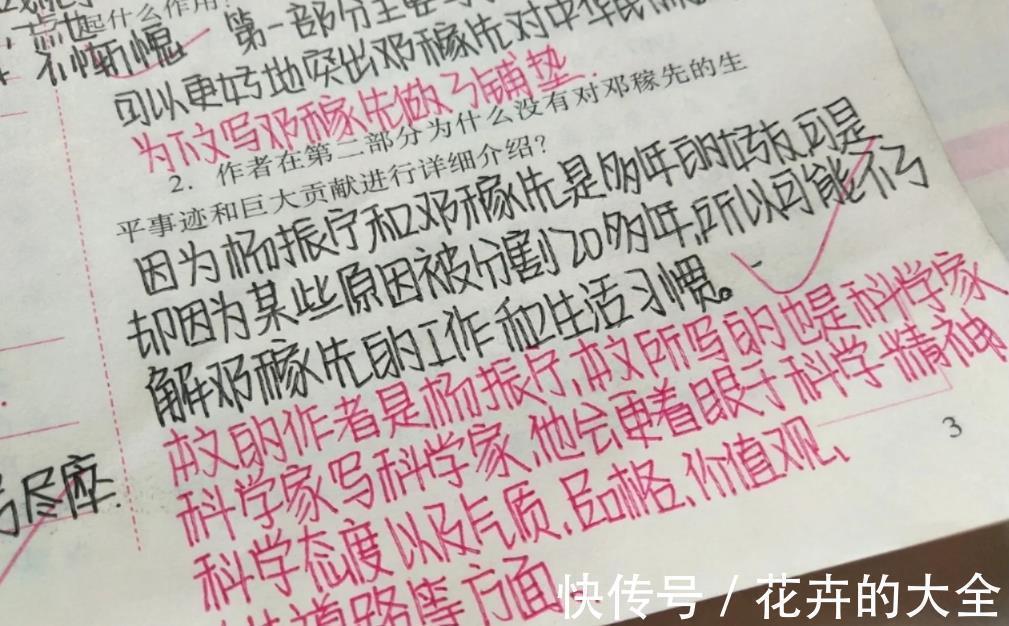 起什么作用?
第一部分主要写
可以更好地突出邓稼先对中华民
为下文写邓稼先做了铺垫.
2. 作者在第二部分为什么没有对邓稼先的生
平事迹和巨大贡献进行详细介绍?
因为杨振宁和邓稼先是多年的好友,可是
却因为某些原因被分割20多年,所以可能不了
解邓稼先的工作和生活习惯。
本文的作者是杨振宁,本文所写的也是科学家
科学家写科学家,他会更着眼于科学精神
科学态度以及气质、品格、价值观、
道路等方面。
尽瘁.
3
快传号 / 花卉的大全